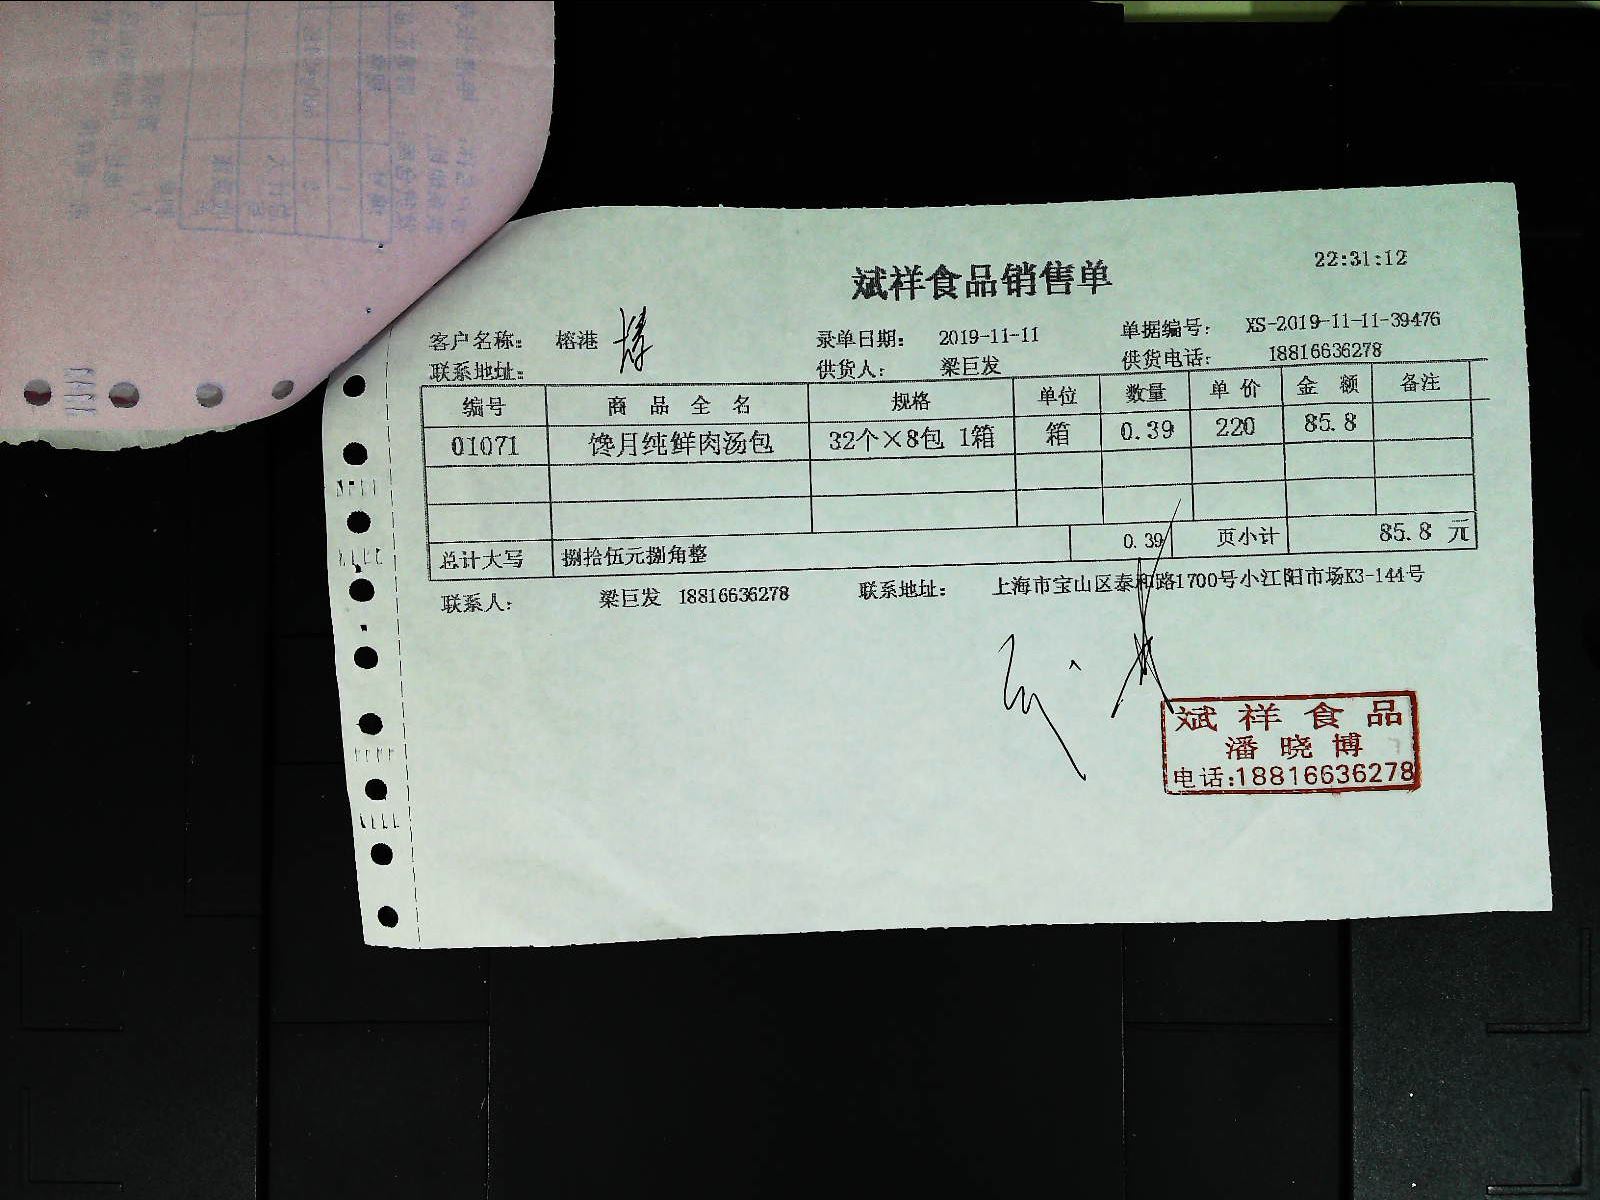 22:31:12
斌祥食品销售单
客户名称： 榕港 录单日期： 2019-11-11 单据编号： XS-2019-11-11-39476
联系地址： 供货人： 梁巨发 供货电话： 18816636278
编号 商品全名 规格 单位 数量 单价 金额 备注
01071 馋月纯鲜肉汤包 32个×8包 1箱 箱 0.39 220 85.8
总计大写 捌拾伍元捌角整 0.39 页小计 85.8 元
联系人： 梁巨发 18816636278 联系地址： 上海市宝山区泰和路1700号小江阳市场K3-144号
斌祥食品
潘晓博
电话:18816636278